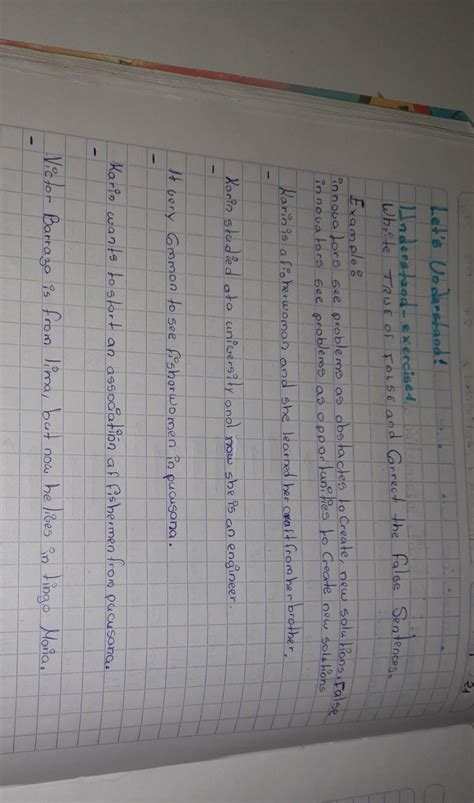 Let's Understand!
Understand-exercises,
White TRUE of FALSE and Correct the false Sentences.
Example:
innovators see problems as obstacles to Create, new solutions. False
innovators see problems as opportunities to Create new solutions
Karin is a fisherwoman and she learned her craft from her brother.
-
Karin studied at a university and now she is an engineer.
-
It very Common to see fisherwomen in pucusana.
-
Karin wants to start an association of fishermen from pucusana.
-
Victor Barraza is from lima, but now he lives in tingo Maria.
-